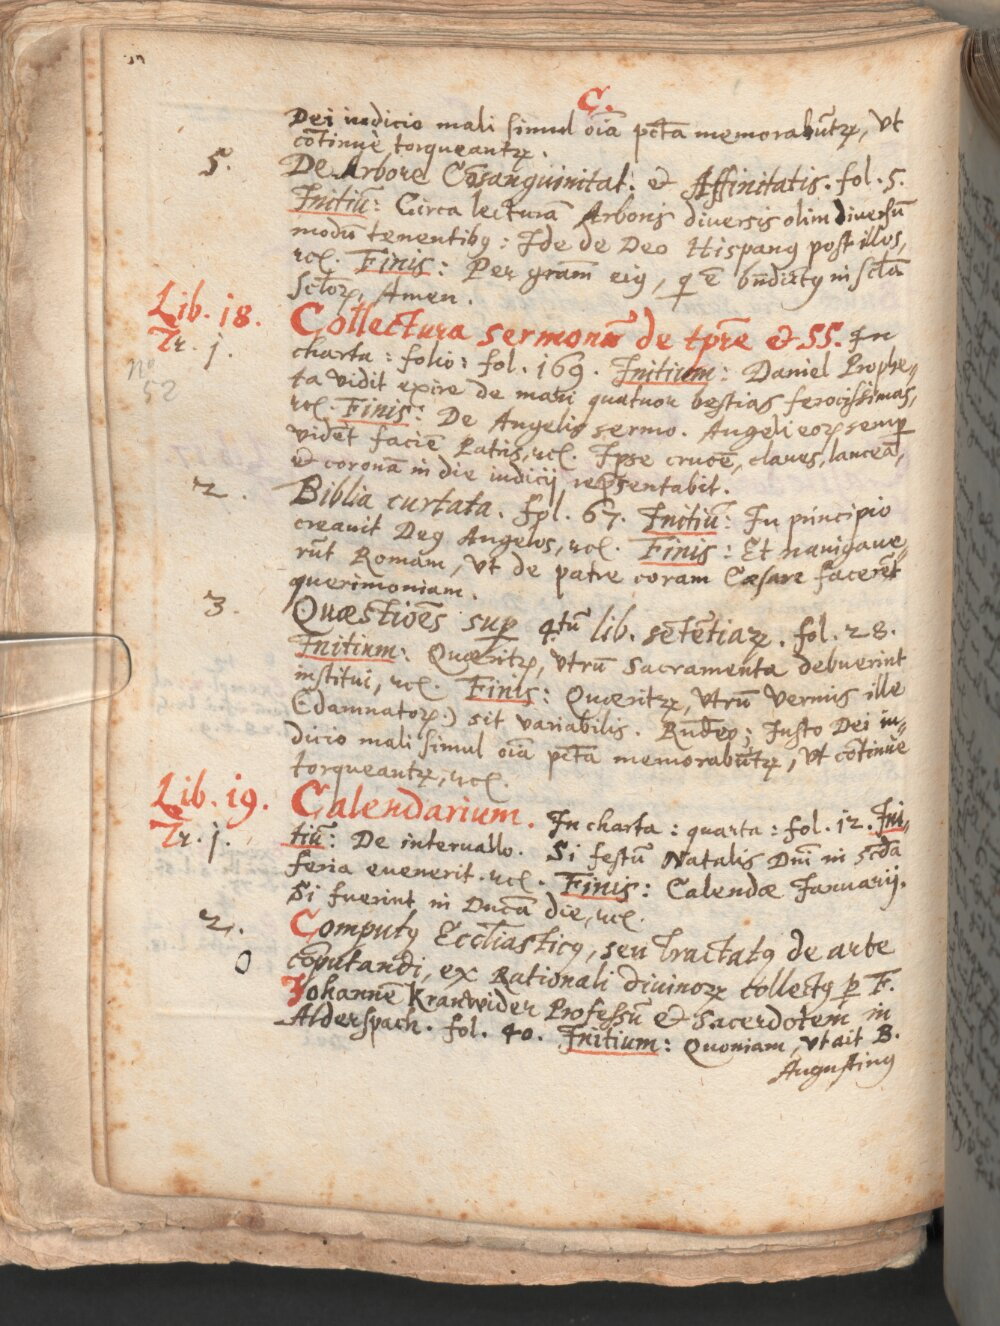 C.
Dei iudicio mali simul oīa pctā memorabūtꝛ, vt
cōtinuè torqueantꝛ.
5. De Arbore Cōsanguinitat: & Affinitatis. fol. 5.
Initiū: Circa lecturā Arboris diversis olim diversū
modū tenentibꝰ: Ide de Deo Hispanꝰ post illos,
ꝛcl. Finis: Per gram̄ eiꝰ, q̄ ē bn̄dictꝰ in sctā
Sctoꝝ, Amen.
Lib. 18. Collectura sermonū de tpr̄e & SS. In
Tr. j. charta: folio: fol. 169. Initium: Daniel Prophe„
Nº 52
ta vidit exire de mari quatuor bestias ferocissimas,
ꝛcl. Finis: De Angelis sermo. Angeli eoꝝ semꝑ
vidēt faciē Patris, ꝛcl. Ipse crucē, claues, lanceā,
& coronā in die iudicij repsentabit.
2. Biblia curtata. fol. 67. Initiū: In principio
creauit Deꝰ Angelos, ꝛcl. Finis: Et nauigaue„
rūt Romam, vt de patre coram Cæsare facerēt
querimoniam.
3. Quæstioēs suꝑ 4.tū lib. setētiaꝝ. fol. 28.
Initium: Quæritꝛ, vtrū Sacramenta debuerint
institui, ꝛcl. Finis: Quæritꝛ, vtrū vermis ille
(damnatoꝝ.) sit variabilis. Rūdeo; Iusto Dei iu„
dicio mali simul oīa pctā memorabūtꝛ, vt cōtinue
torqueantꝛ, ꝛcl.
Lib. 19. Calendarium. In charta: quarta: fol. 12. Ini„
Tr. j. tiū: De interuallo. Si festū Natalis Dnī in scdā
feria euenerit. ꝛcl. Finis: Calendæ Ianuarij.
Si fuerint in Dn̄ca die, ꝛcl.
2. Computꝰ Eccliasticꝰ, seu Tractatꝰ de arte
0 cōputandi, ex Rationali diuinoꝝ collectꝰ ꝑ F.
Johannē Kranwider Professū & Sacerdotem in
Alderspach. fol. 40. Initium: Quoniam, vt ait B.
Augustinꝰ